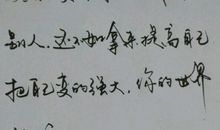 别人，还不如拿来提高自己
把自己变的强大，你的世界